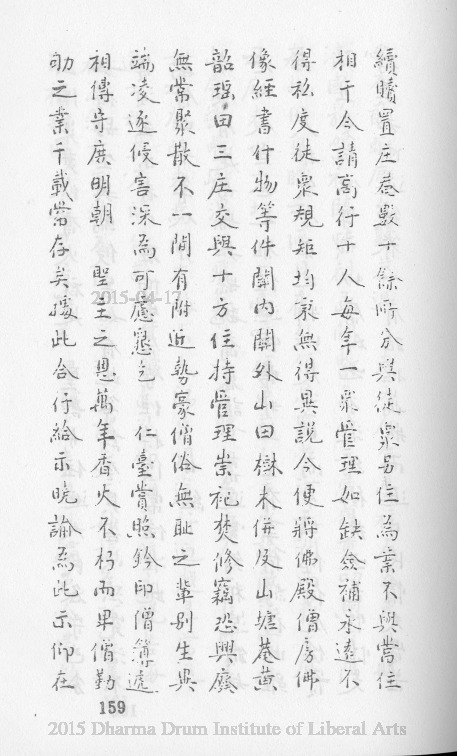 續贖置庄巷數十餘所分與徒衆另住為業不與常住
相干今請高行十人每年一衆管理如缺僉補永遠不
得私度徒衆規矩均衆無得異說今便將佛殿僧房佛
像經書什物等件關內關外山田樹木併及山塘菴黃
韶瑶田三庄交與十方住持管理崇祀焚修竊恐興廢
無常聚散不一間有附近勢豪僧俗無耻之輩別生異
端凌逐侵害深為可慮懇乞 仁臺賞照鈐印僧簿遞
相傳守庶明朝 聖主之恩萬年香火不朽而卑僧勤
劬之業千載常存矣據此合行給示曉諭為此示仰在
159
2015-04-17
2015 Dharma Drum Institute of Liberal Arts